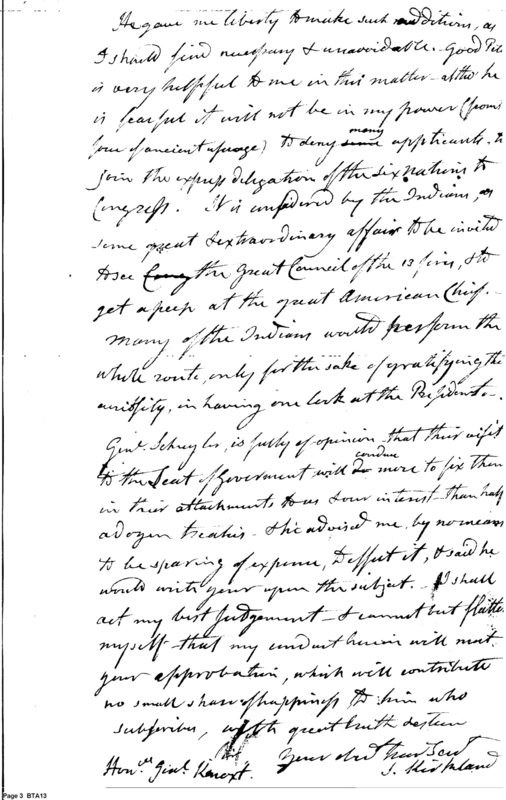 He gave me liberty to make such additions, as
I should find necessary & unavoidable. Good Pet
is very helpful to me in this matter - altho he
is fearful it will not be in my power (from
force of ancient usage) to deny many applicants to
join the express delegation of the six nations to
Congress. It is considered by the Indians, as
some great & extraordinary affair to be invited
to see the Great Council of the 13 fires, & to
get a peep at the great American Chief.
Many of the Indians would perform the
whole route, only for the sake of gratifying the
curiosity, in having one look at the President.
Genl. Schuyler, is fully of opinion that their visit
to the Seat of Goverment will conduce more to fix them
in their attachments to us & our interest - than half
a dozen treaties - & he advised me, by no means
to be sparing of expence, to effect it, & said he
would write your upon the subject. I shall
act my best Judgement - & cannot but flatter
myself - that my conduct herein will meet
your approbation, which will contribute
no small share of happiness to him who
subscribes, with great truth & esteem
Your obdt. humb Servt
Honble. Genl. Knox. S. Kirkland
Page 3 BTA13